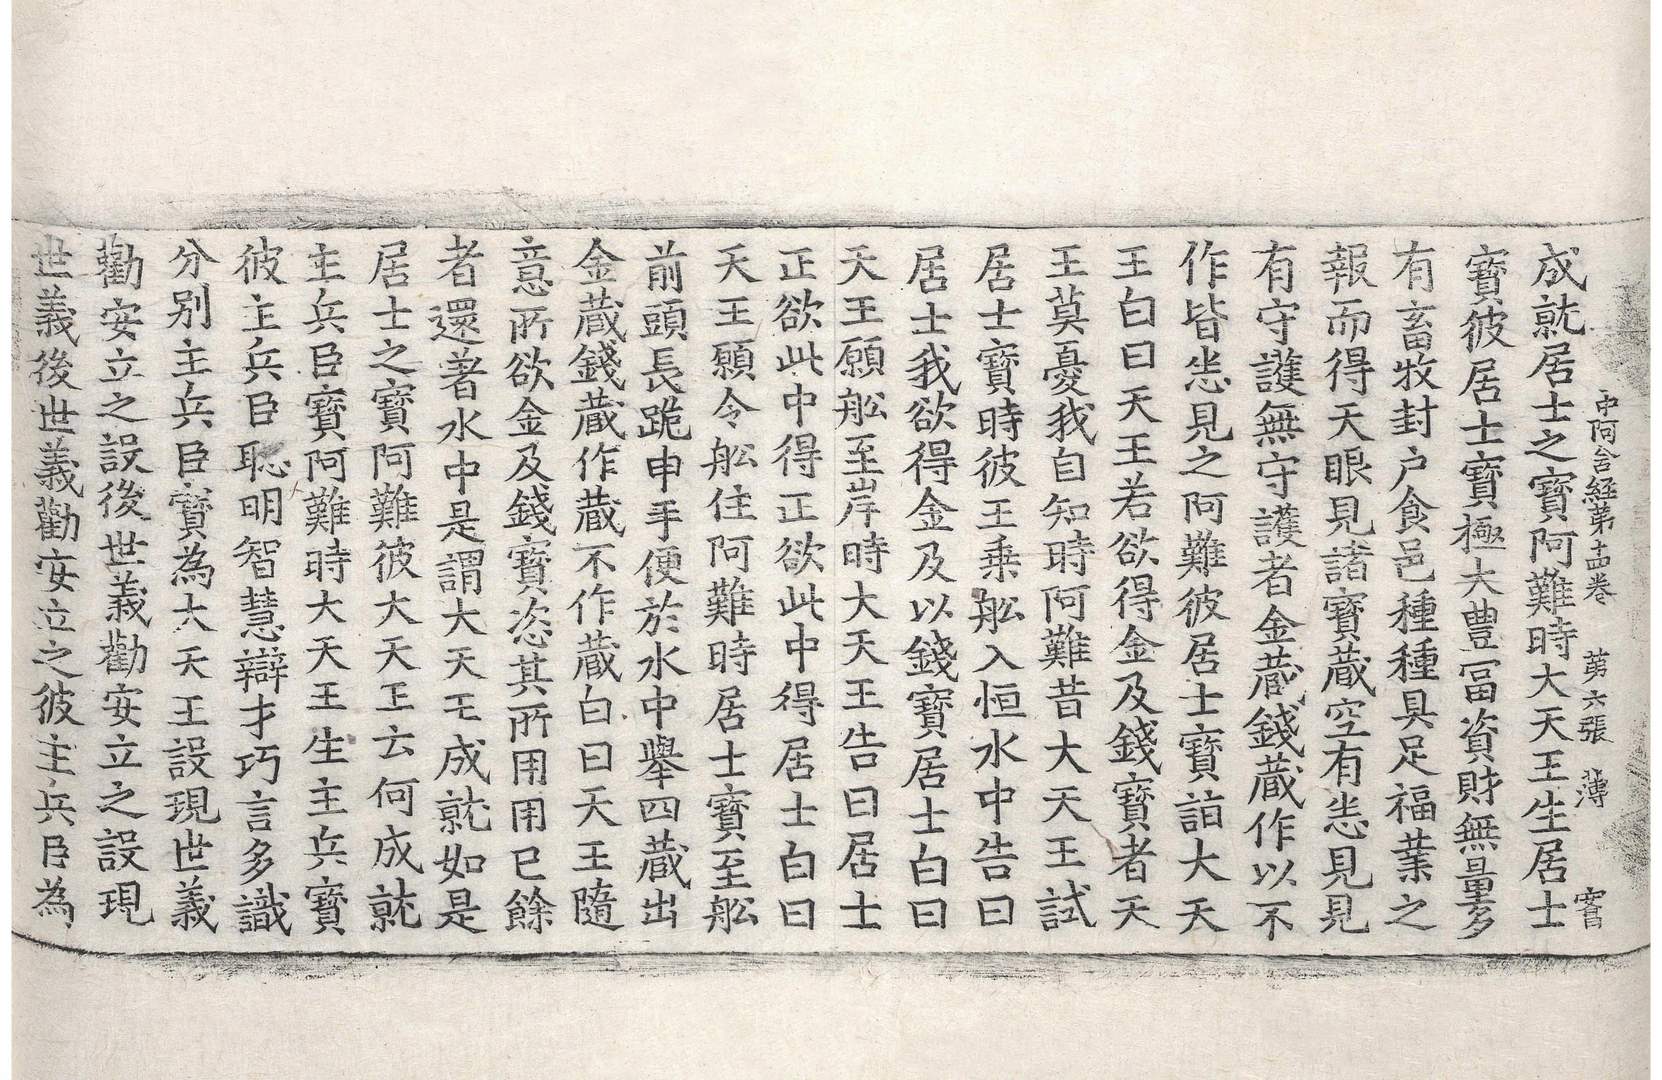 中阿含經第十四卷　第六張　薄　
成就居士之寶阿難時大天王生居士
寶彼居士寶極大豊冨資財無量多
有畜牧封户食邑種種具足福業之
報而得天眼見諸寶藏空有悉見見
有守護無守護者金藏錢藏作以不
作皆悉見之阿難彼居士寶詣大天
王白曰天王若欲得金及錢寶者天
王莫憂我自知時阿難昔大天王試
居士寶時彼王乗舩入恒水中告曰
居士我欲得金及以錢寶居士白曰
天王願舩至岸時大天王告曰居士
正欲此中得正欲此中得居士白曰
天王願令舩住阿難時居士寶至舩
前頭長跪申手便於水中舉四藏出
金藏錢藏作藏不作藏白曰天王隨
意所欲金及錢寶恣其所用用已餘
者還著水中是謂大天王成就如是
居士之寶阿難彼大天王云何成就
主兵臣寶阿難時大天王生主兵寶
彼主兵臣聡明智慧辯才巧言多識
分别主兵臣寶為大天王設現世義
勸安立之設後世義勸安立之設現
世義後世義勸安立之彼主兵臣為